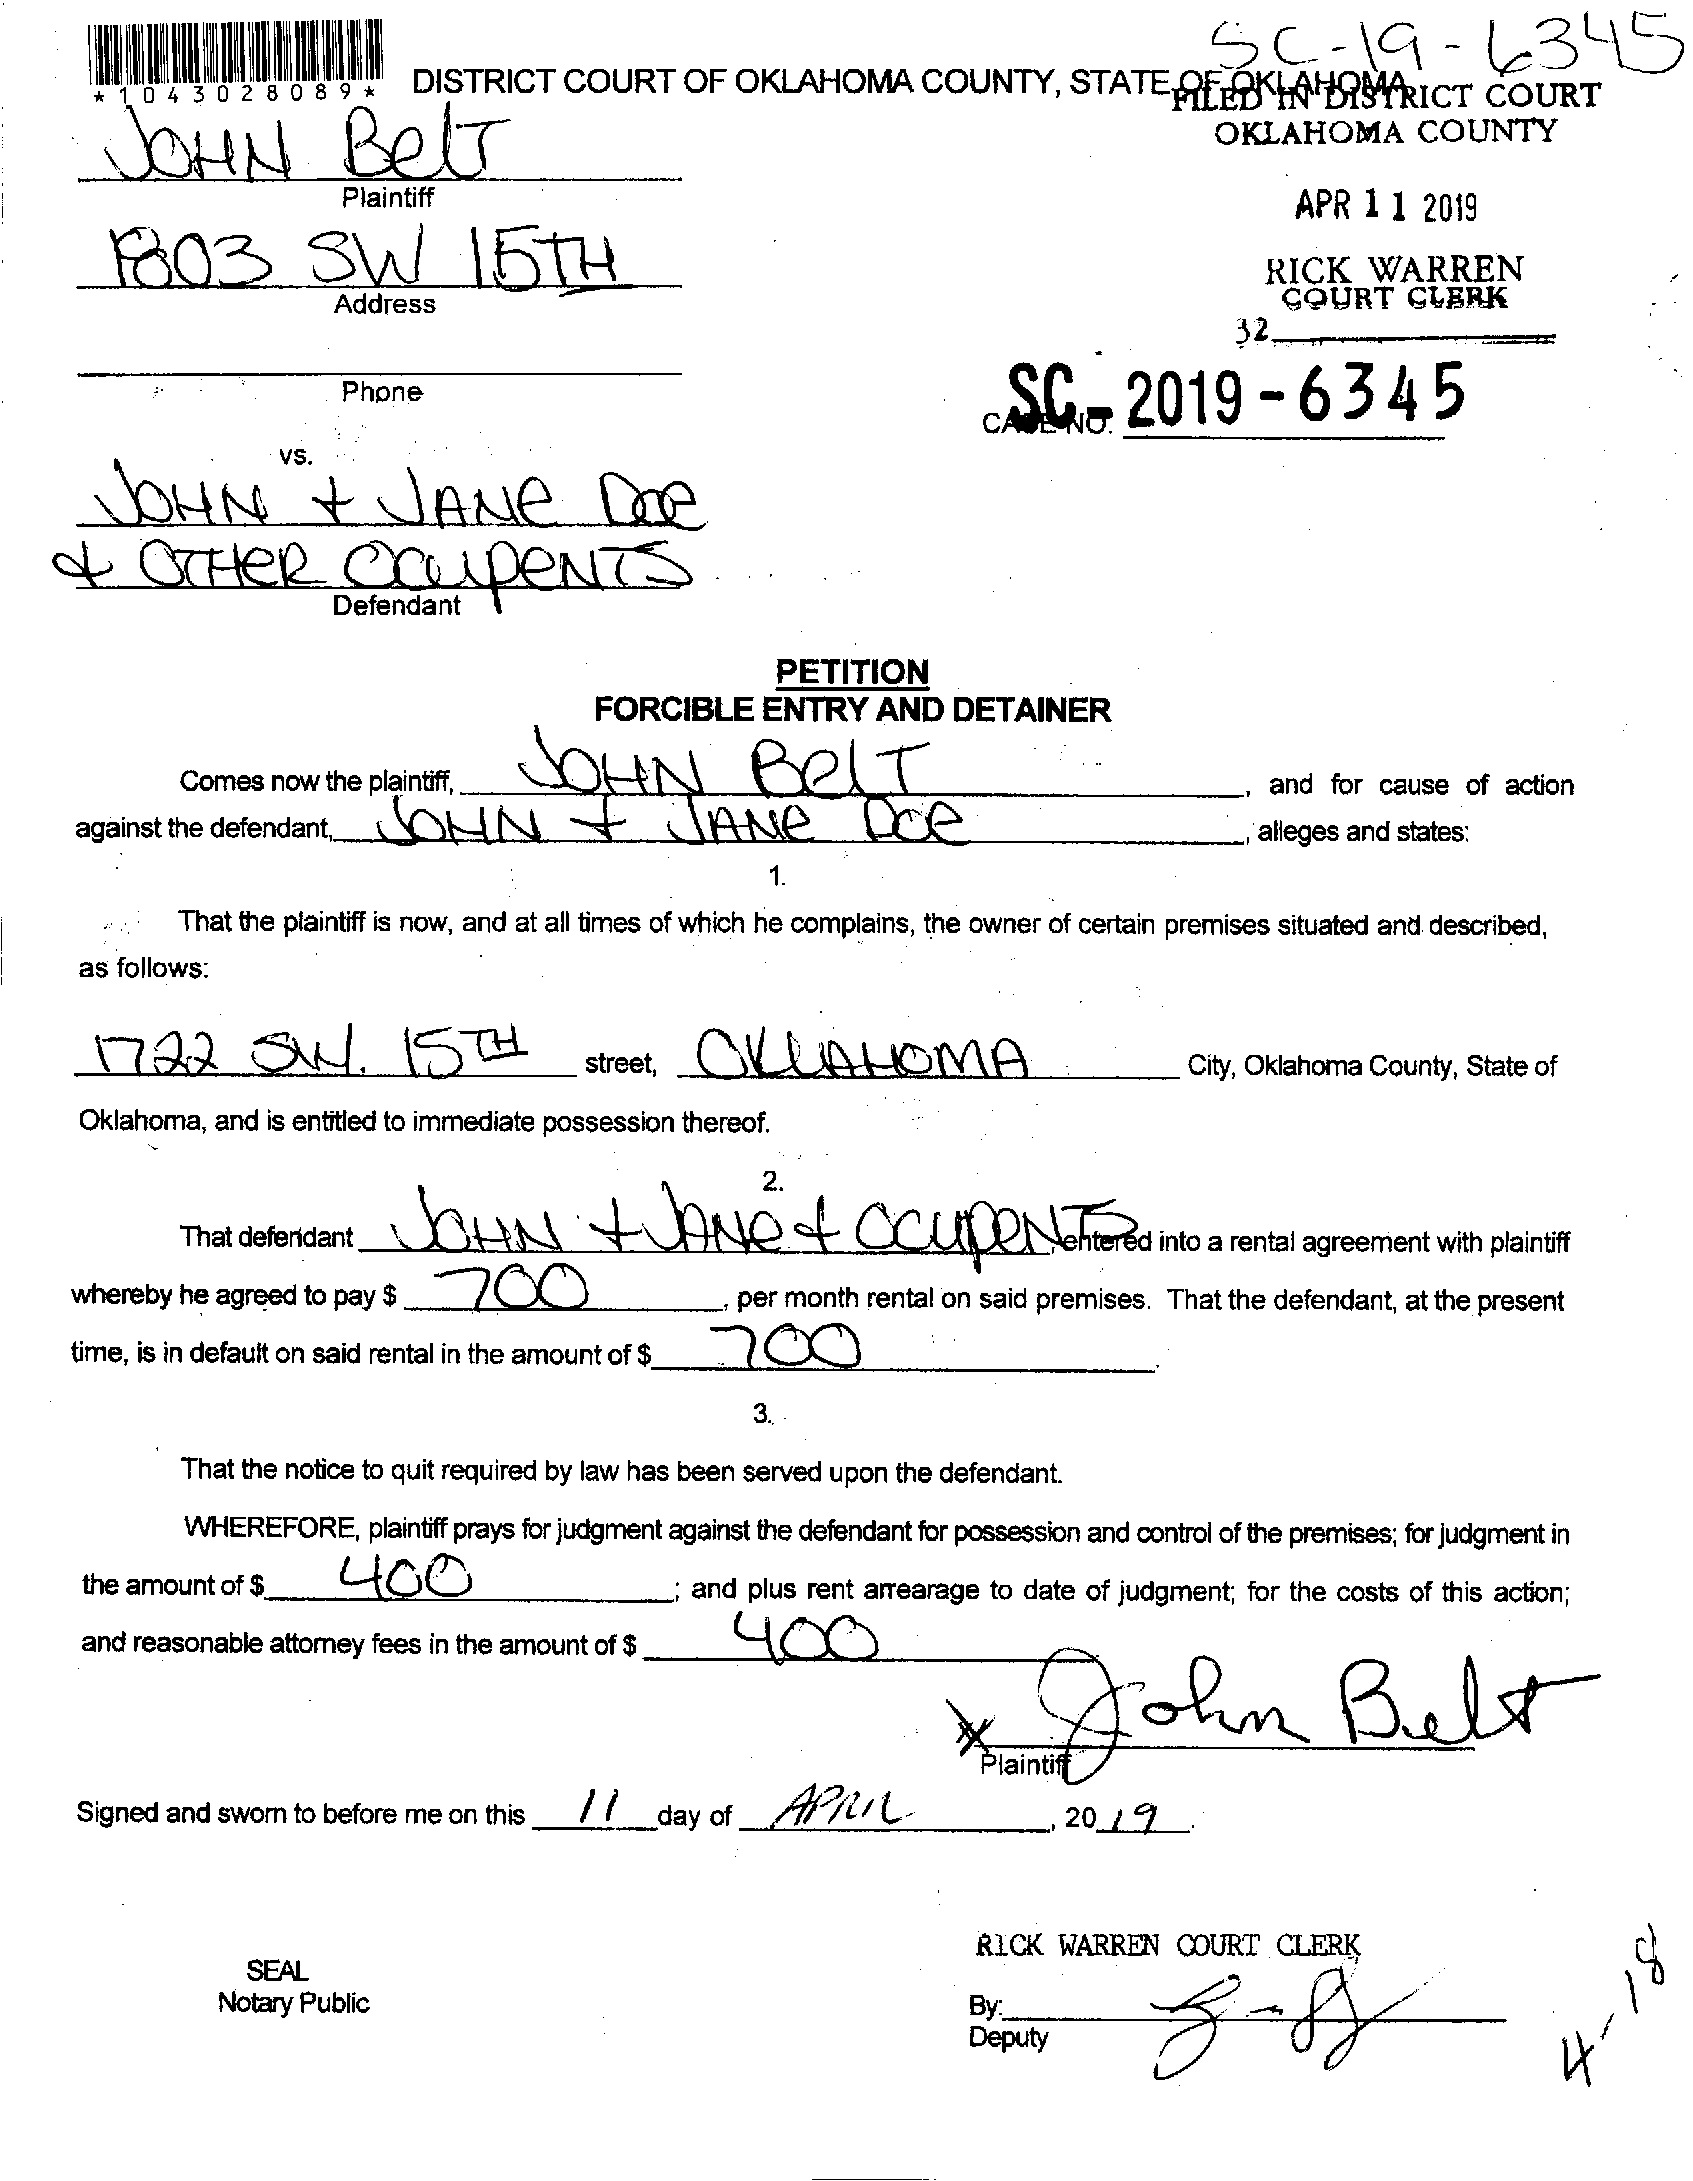 SC-19-6345
*1043028089*
DISTRICT COURT OF OKLAHOMA COUNTY, STATE OF OKLAHOMA
FILED IN DISTRICT COURT
OKLAHOMA COUNTY
JOHN Belt
Plaintiff
APR 11 2019
1803 SW 15TH
Address
RICK WARREN
COURT CLERK
32
Phone
CASE NO. SC-2019-6345
vs.
JOHN + JANe Doe
+ OTHeR OCCupeNTS
Defendant
PETITION
FORCIBLE ENTRY AND DETAINER
Comes now the plaintiff, JOHN BelT, and for cause of action
against the defendant, JOHN + JANe Doe, alleges and states:
1.
That the plaintiff is now, and at all times of which he complains, the owner of certain premises situated and described,
as follows:
1722 SW. 15TH street, OKLAHOMA City, Oklahoma County, State of
Oklahoma, and is entitled to immediate possession thereof.
2.
That defendant JOHN + JANe + OCCupeNTS, entered into a rental agreement with plaintiff
whereby he agreed to pay $ 700, per month rental on said premises. That the defendant, at the present
time, is in default on said rental in the amount of $ 700.
3.
That the notice to quit required by law has been served upon the defendant.
WHEREFORE, plaintiff prays for judgment against the defendant for possession and control of the premises; for judgment in
the amount of $ 400; and plus rent arrearage to date of judgment; for the costs of this action;
and reasonable attorney fees in the amount of $ 400
X John Belt
Plaintiff
Signed and sworn to before me on this 11 day of APRIL, 2019.
RICK WARREN COURT CLERK
SEAL
Notary Public
By:
Deputy
4-18